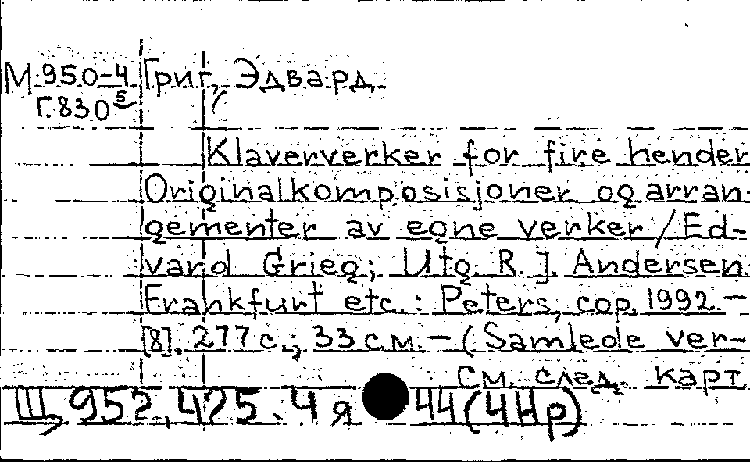 М 950-4 Григ, Эдвард.
Г.830⁵
Klaververker for fire hender
Originalkomposisjoner og arran-
gementer av egne verker / Ed-
vard Grieg; Utg. R. J. Andersen.
Frankfurt etc.: Peters, cop. 1992. –
[8], 277 с.; 33 см. – (Samlede ver-
См. след. карт.
Щ 952.425.4я 44(4Нр)